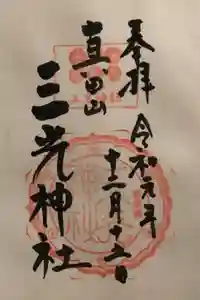 奉拝
令和元年
十二月十五日
真田山
三光神社